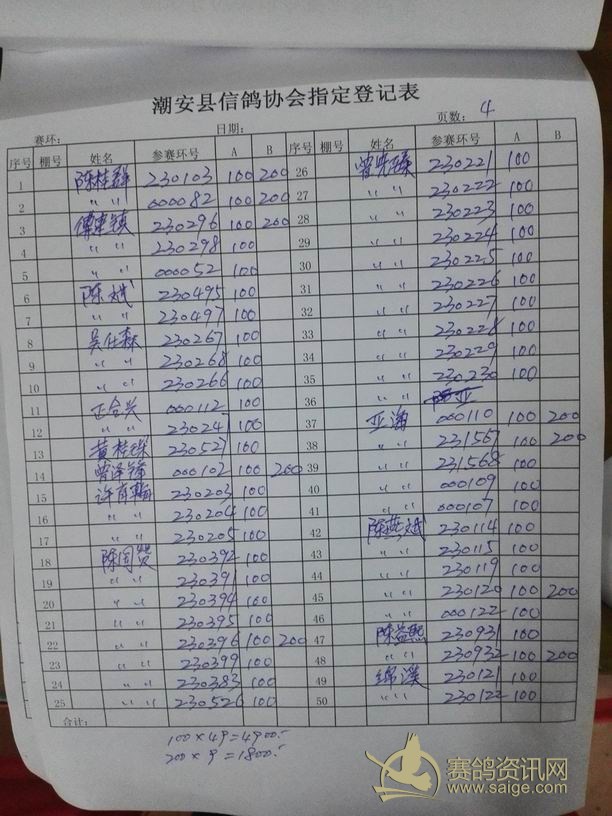 潮安县信鸽协会指定登记表
赛环： 日期： 页数： 4
序号 棚号 姓名 参赛环号 A B 序号 棚号 姓名 参赛环号 A B
1 陈桂群 230103 100 200 26 曾宪臻 230221 100
2 〃 〃 000082 100 200 27 〃 〃 230222 100
3 230296 100 200 28 〃 〃 230223 100
4 〃 〃 230298 100 29 〃 〃 230224 100
5 〃 〃 000052 100 30 〃 〃 230225 100
6 陈斌 230495 100 31 〃 〃 230226 100
7 〃 〃 230497 100 32 〃 〃 230227 100
8 吴任森 230267 100 33 〃 〃 230228 100
9 〃 〃 230268 100 34 〃 〃 230229 100
10 〃 〃 230266 100 35 〃 〃 230230 100
11 正合兴 000112 100 36 〃 〃
12 〃 〃 230241 100 37 亚瀚 000110 100 200
13 黄桂珠 230527 100 38 〃 〃 231567 100 200
14 曾泽锋 000102 100 200 39 〃 〃 231568 100
15 230203 100 40 〃 〃 000109 100
16 〃 〃 230204 100 41 〃 〃 000107 100
17 〃 〃 230205 100 42 陈燕斌 230114 100
18 陈同贤 230392 100 43 〃 〃 230115 100
19 〃 〃 230391 100 44 〃 〃 230119 100
20 〃 〃 230394 100 45 〃 〃 230120 100 200
21 〃 〃 230395 100 46 〃 〃 000122 100
22 〃 〃 230396 100 200 47 陈益熙 230931 100
23 〃 〃 230399 100 48 〃 〃 230932 100 200
24 〃 〃 230383 100 49 绵溪 230121 100
25 〃 〃 230526 100 50 〃 〃 230122 100
合计：
100×49=4900.
200×9=1800.
赛鸽资讯网
www.saige.com